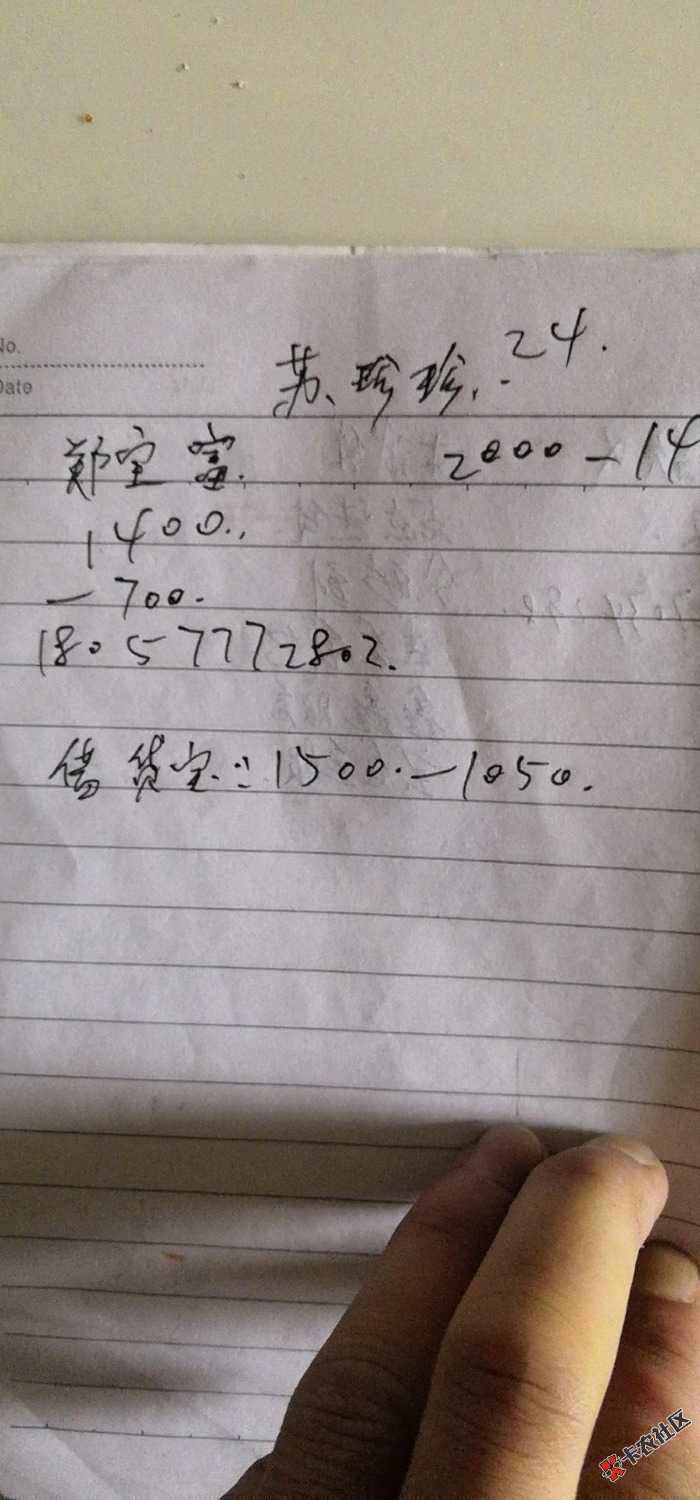 No.
Date
苏、珍珍. 24.
郑宝富.
2000-14
1400..
-700.
18057772802.
借贷宝:1500.-1050.
卡农社区